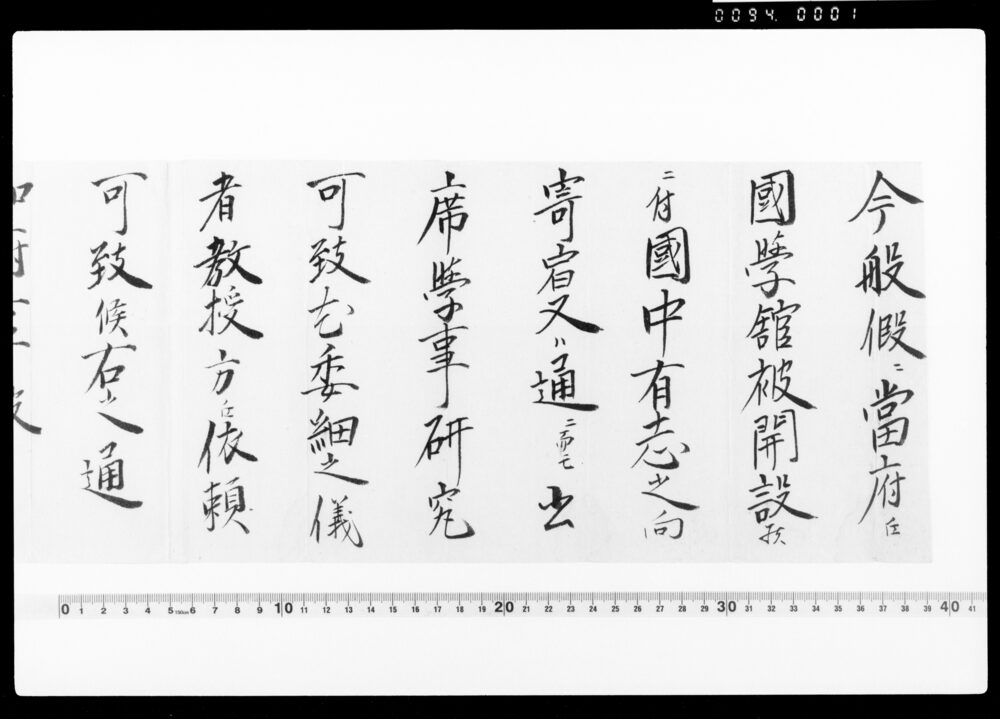 0094.0001
今般假ニ當府江
國學館被開設候
ニ付國中有志之向
寄宿又ハ通ニ而モ出
席學事研究
可致尤委細之儀
者教授方江依頼
可致候右之通
0 1 2 3 4 5 100cm 6 7 8 9 10 11 12 13 14 15 16 17 18 19 20 21 22 23 24 25 26 27 28 29 30 31 32 33 34 35 36 37 38 39 40 41